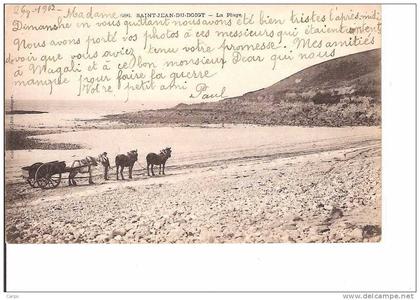 26-9-1902
Madame
SAINT-JEAN-DU-DOIGT - La Plage
Dimanche en vous quittant nous avons été bien tristes l'après midi
Nous avons porté vos photos à ces messieurs qui étaient contents
de voir que vous aviez tenu votre promesse. Mes amitiés
à Magali et à ce bon monsieur Dear qui nous
manque pour faire la guerre
Votre petit ami Paul
delcampe.net